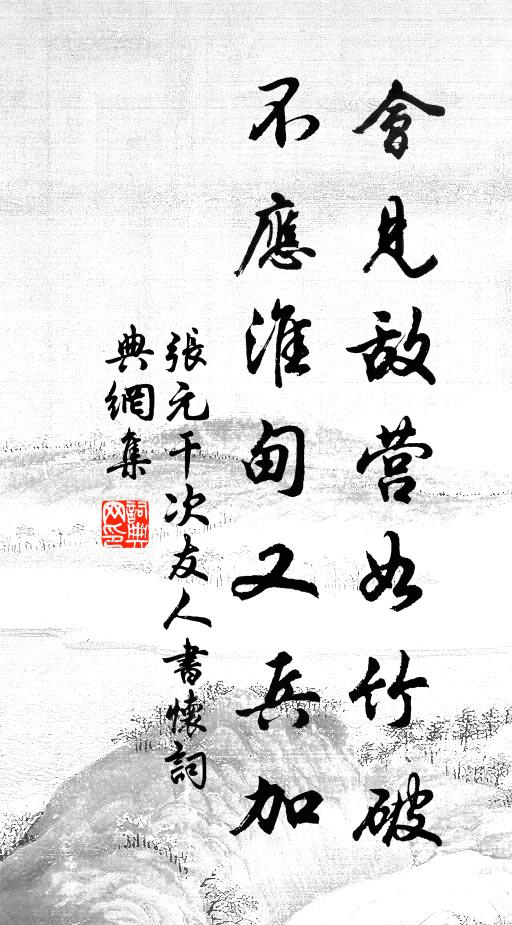 會見敌营如竹破
不應淮甸又兵加
張元干次友人書懷詞
典網集
詞典网印